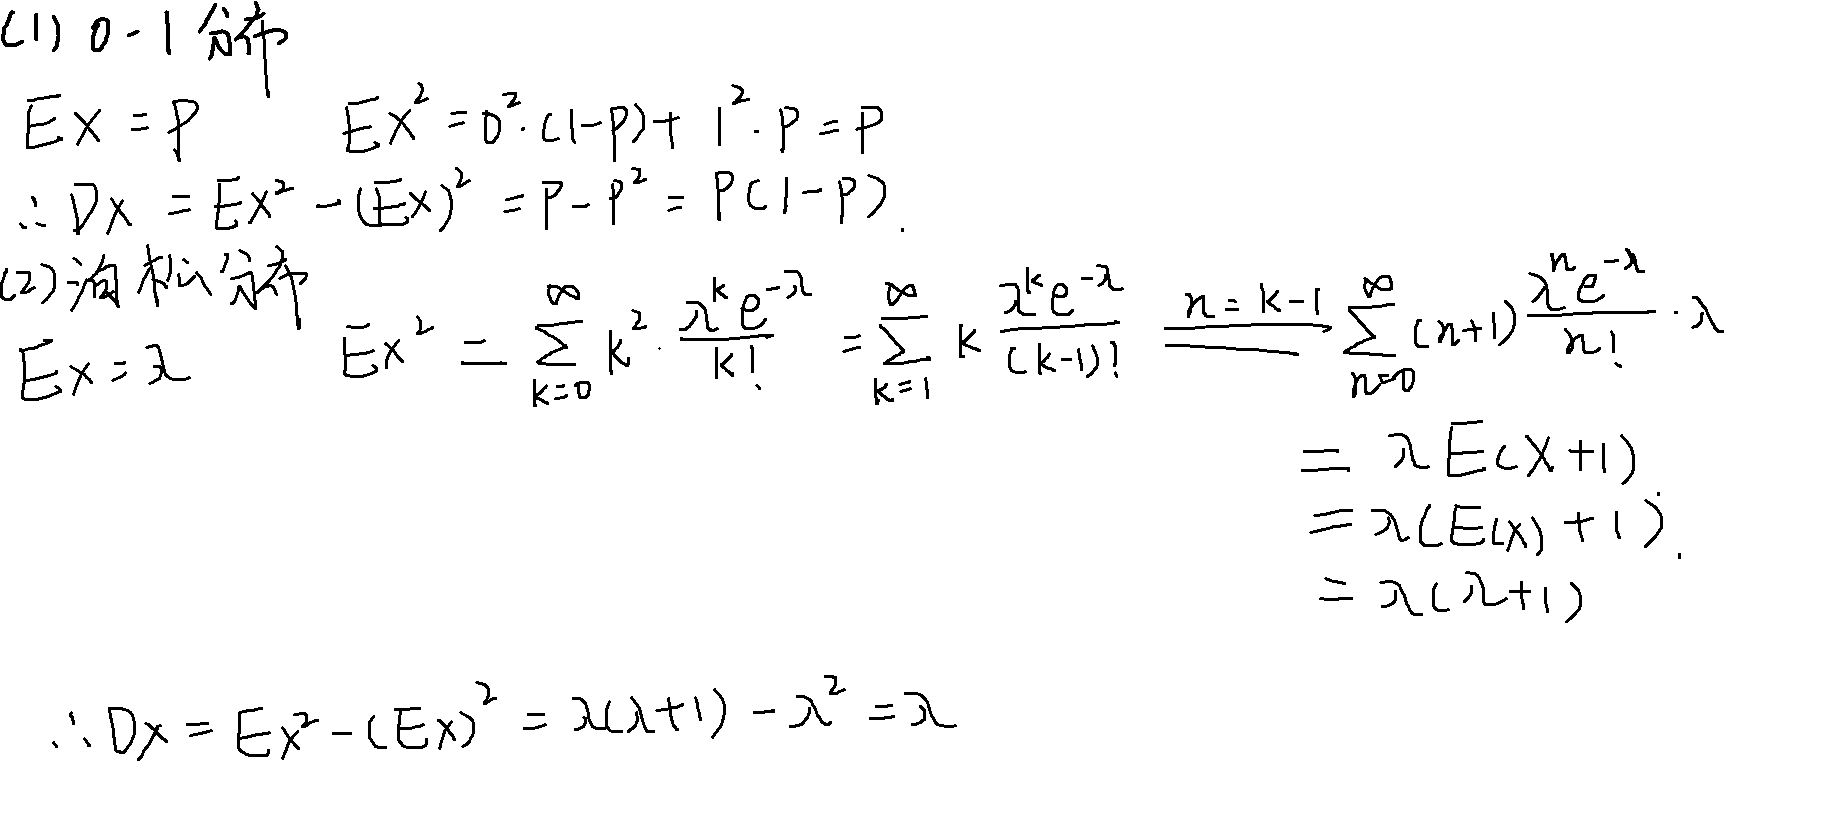 (1) 0-1分布
EX = P EX² = 0²·(1-P) + 1²·P = P
∴ DX = EX² - (EX)² = P - P² = P(1-P).
(2) 泊松分布
EX = λ EX² = \sum_{k=0}^{∞} k² · \frac{λ^k e^{-λ}}{k!} = \sum_{k=1}^{∞} k \frac{λ^k e^{-λ}}{(k-1)!} \xlongequal{n=k-1} \sum_{n=0}^{∞} (n+1) \frac{λ^n e^{-λ}}{n!} · λ
= λE(X+1)
= λ(E(X)+1).
= λ(λ+1)
∴ DX = EX² - (EX)² = λ(λ+1) - λ² = λ